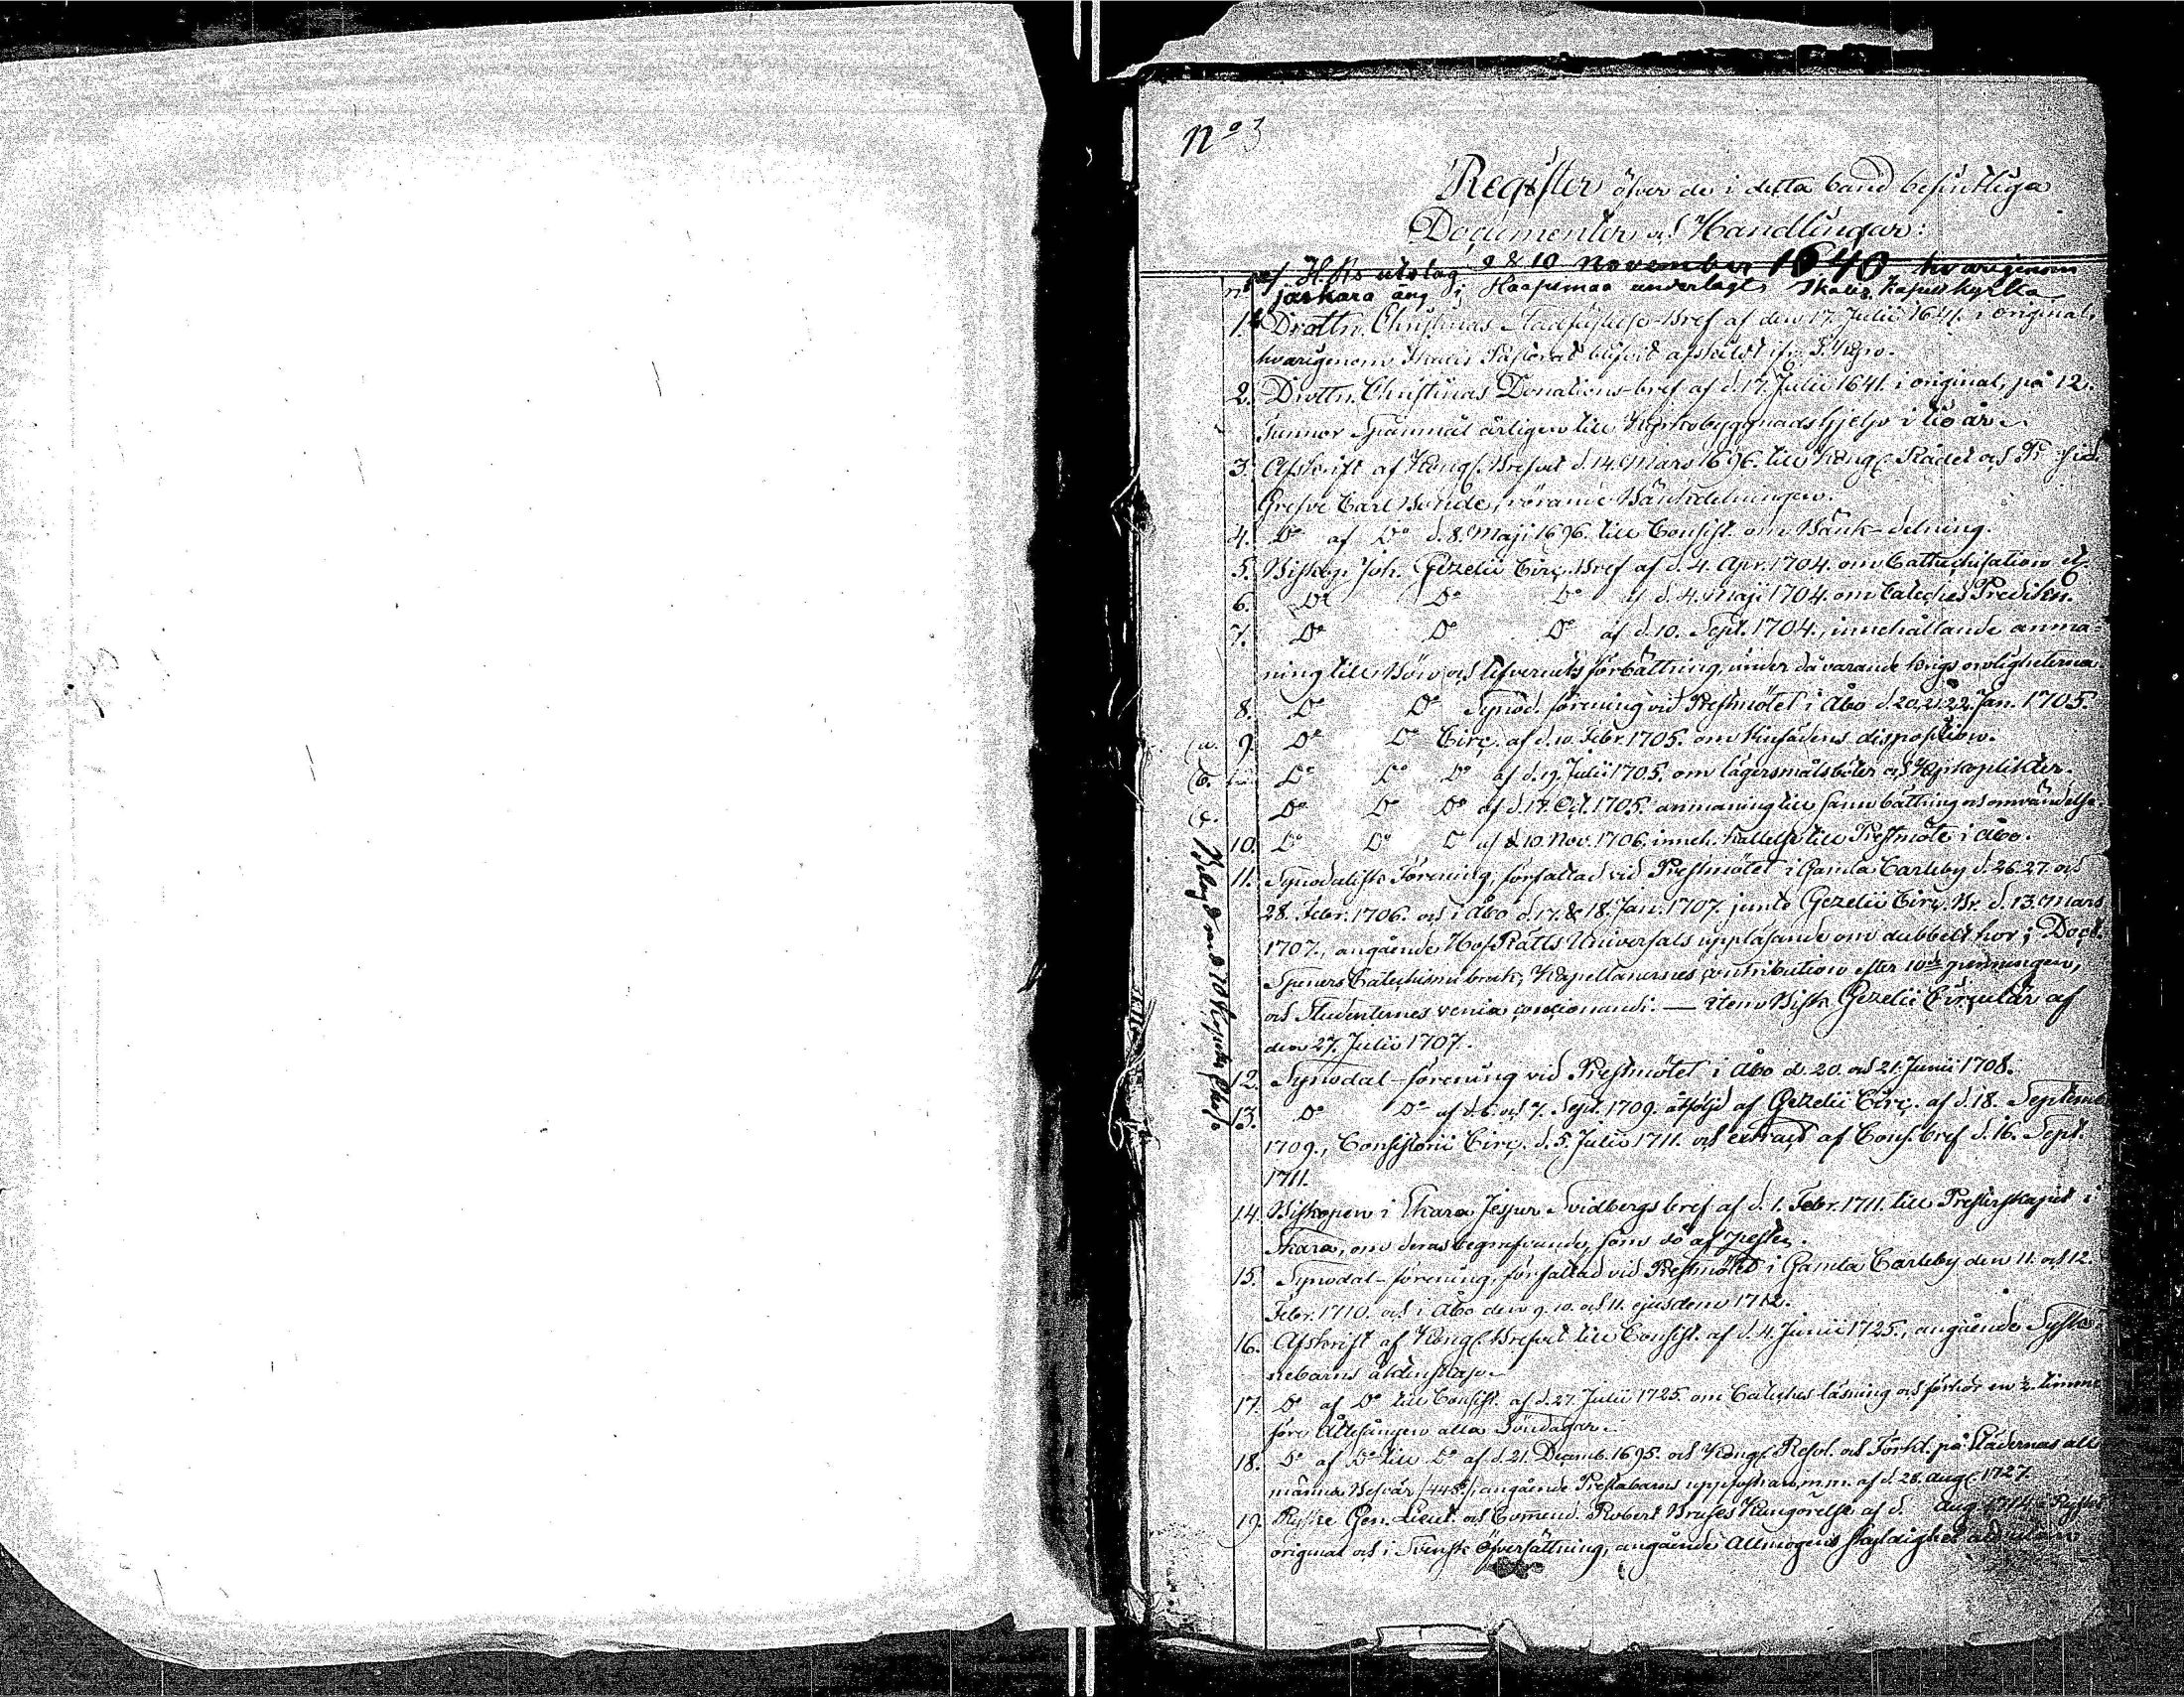 No 3
Register öfver de i detta band befintliga
Documenter och Handlingar:
af H. Ks utslag d 10 November 1640 hvarigenom
järkara äng i Haapimaa underlagts Ikalis Kapell kyrka
1. Drottn. Christinas Stadfästelse-Bref af den 17. Julii 1641. i original,
hvarigenom Ikalis Pastorat blifvit afskildt ifr. Kyro.
2. Drottn. Christinas Donations-bref af d. 17. Julii 1641. i original, på 12.
Tunnor Spannmål årligen till Kyrkobyggnadshjelp i tio år.
3. Afskrift af Kongl. Brefvet d. 14. Mars 1696. till Kongl. Rådet och
Grefve Carl Bonde, rörande Bänkdelningen.
4. Do af Do d. 8. Maji 1696. till Consist. om Bänk-delning.
5. Biskop Joh. Gezelii Circ. Bref af d. 4. Apr. 1704. om Catechisation
6. Do Do Do af d. 4. Maji 1704. om Cateches Predikn.
7. Do Do Do af d. 10. Sept. 1704., innehållande anma-
ning till Bön och lefvernets förbättring, under då varande krigs oroligheterna.
8. Do Do Synod. förening vid Prestmötet i Åbo d. 20. 21. 22. Jan. 1705.
(a. 9. Do Do Circ. af d. 10. Febr. 1705. om disposition.
(b. Do Do Do af d. 19. Julii 1705. om lägersmålsböter och Kyrkoplikter.
(c. Do Do Do af d. 17. Oct. 1705. anmaning till sann bättring och omvändelse.
10. Do Do Do af d. 10. Nov. 1706. inneh. kallelse till Prestmöte i Åbo.
11. Synodalisk Förening, författad vid Prestmötet i Gamla Carleby d. 26. 27. och
28. Febr. 1706. och i Åbo d. 17. & 18. Jan. 1707. jemte Gezelii Circ. Br. d. 13. Mars
1707., angående HofRätts Universals uppläsande om dubbelt hor; Doct.
Speners Catechismi bruk; Kapellanernes contribution efter 10de penningen,
och Studenternes venia concionandi. — item Bisk. Gezelii Circulär af
den 27. Julii 1707.
12. Synodal-förening vid Prestmötet i Åbo d. 20. och 21. Junii 1708.
13. Do Do af d. 6. och 7. Sept. 1709. åtföljd af Gezelii Circ. af d. 18. Septemb
1709., Consistorii Circ. d. 5. Julii 1711. och extract af Cons. bref d. 16. Sept.
1711.
14. Biskopen i Skara Jesper Svidbergs bref af d. 1. Febr. 1711. till Presterskapet i
Skara, om deras begrafvande, som dö af pesten.
15. Synodal-förening, författad vid Prestmötet i Gamla Carleby den 11. och 12.
Febr. 1710. och i Åbo den 9. 10. och 11. ejusdem 1712.
16. Afskrift af Kongl. Brefvet till Consist. af d. 4. Junii 1725., angående Syska-
nebarns äktenskap.
17. Do af Do till Consist. af d. 27. Julii 1725. om Cateches läsning och förhör en ½ timme
före Ottesången alla Söndagar.
18. Do af Do till Do af d. 21. Decemb. 1695. och Kongl. Resol. och Förkl. på Städernas all-
männa Besvär angående Prestabarns uppfostran, m.m. af d. 28. Aug. 1727.
19. Ryske Gen. Lieut. och Commend. Robert Bruses Kungörelse af d. Aug. 1714. i Ryskt
original och i Svensk öfversättning, angående Allmogens skyldighet